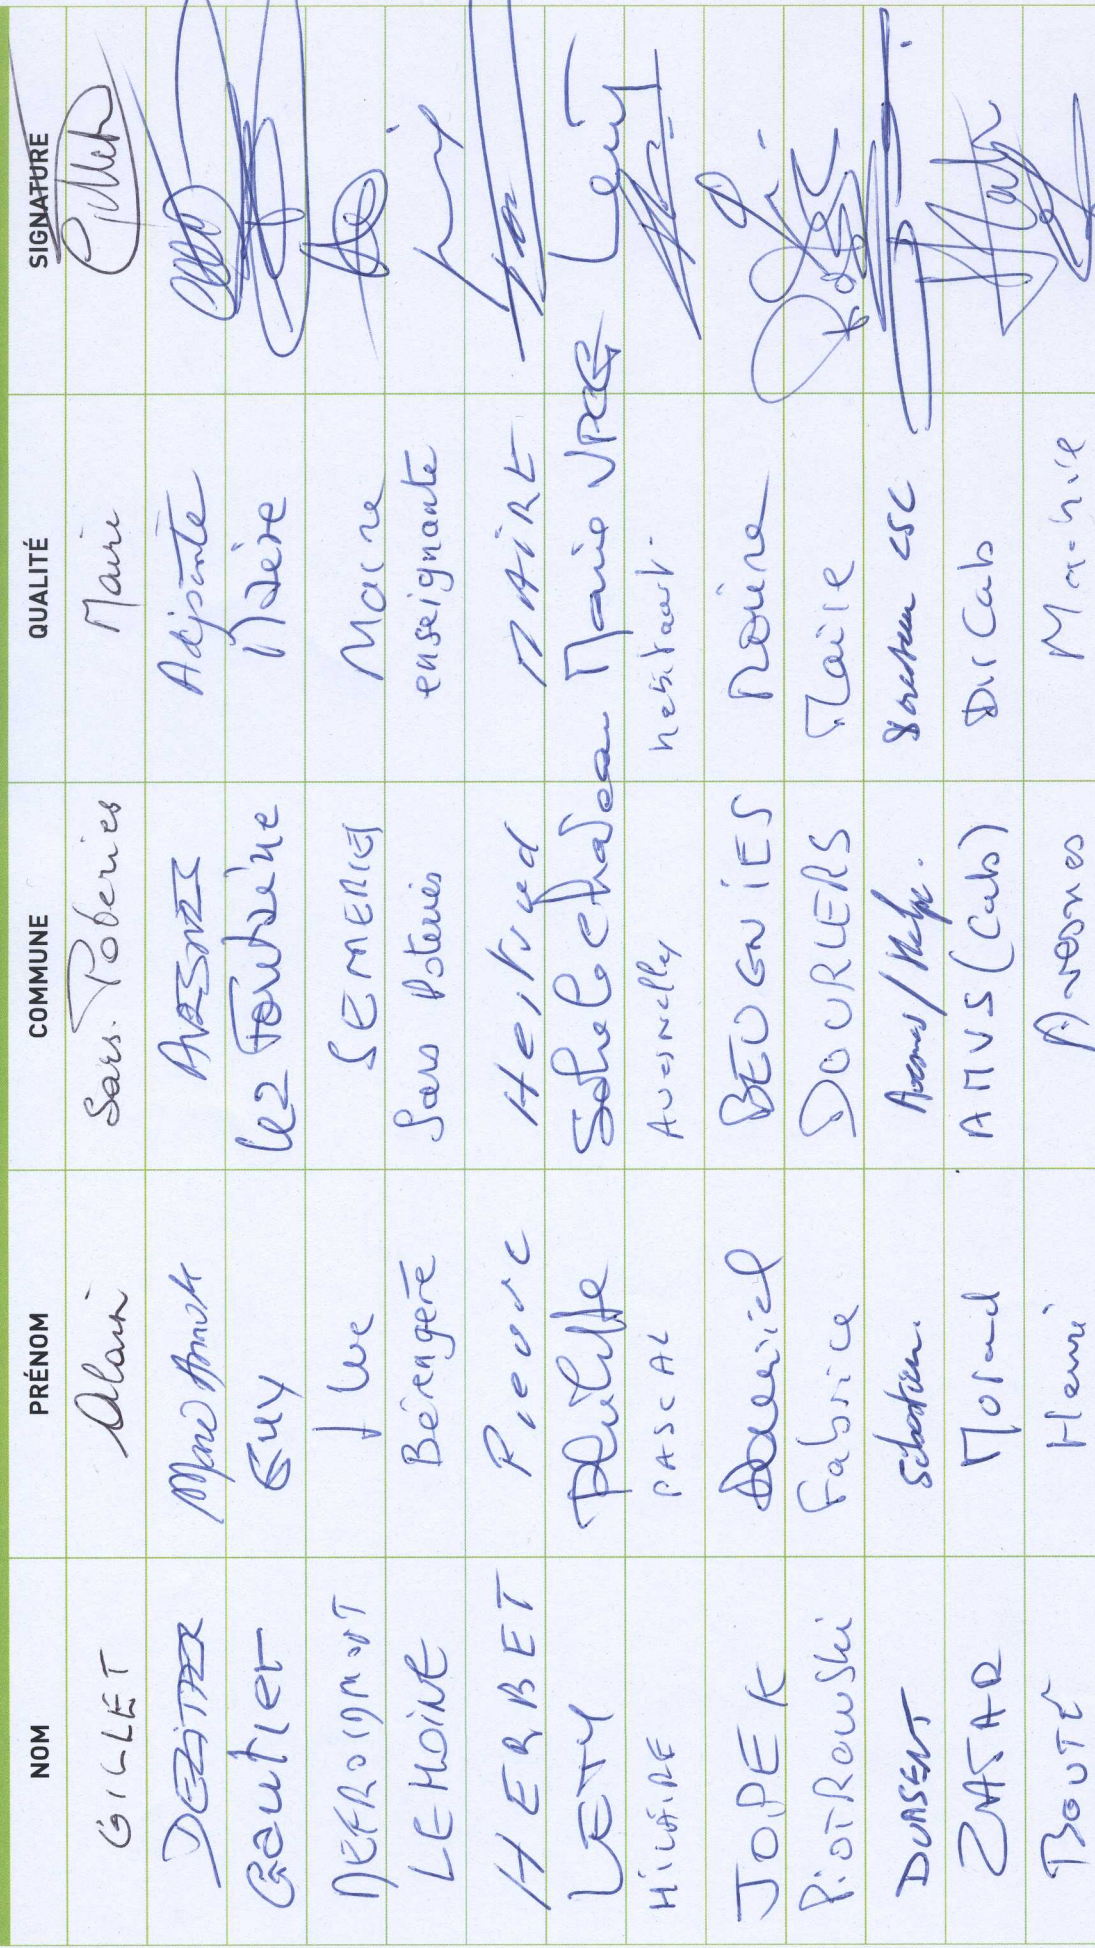 NOM PRÉNOM COMMUNE QUALITÉ SIGNATURE
GILLET Alain Sars. Poteries Maire Gillet
DEZITTER Marie Annick AVESNES Adjointe
Gautier Guy lez Fontaine Maire
DEFROIDMONT Luc SEMERIES Maire
LEMOINE Bérengère Sars Poteries enseignante
HERBET Pierre MAIRE
LETY Philippe Solre le Chateau Maire VPCG Lety
HILAIRE PASCAL Avesnelles habitant.
JOPEK BEUGNIES Maire
PiOTRowski Fabrice DOURLERS Maire
DURSENT Sébastien Avesnes/Helpe. Directeur CSC
ZATAR Morad AMVS (Cab) Dir Cab
BOUTÉ Henri Avesnes